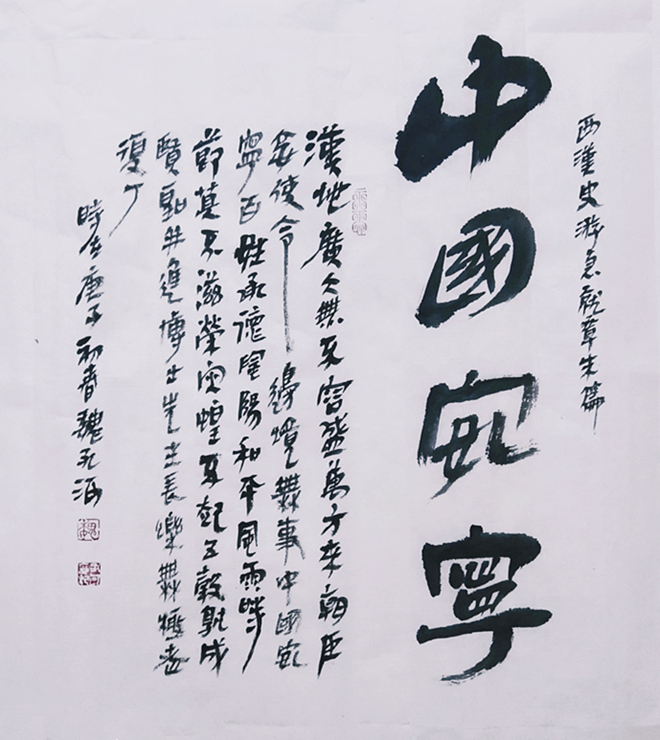 西漢史游急就章末篇
中國安寧
漢地廣大無不容盛萬方來朝臣
妾使令邊境無事中國安
寧百姓承德陰陽和平風雨時
節莫不滋榮灾蝗不起五穀孰成
賢聖并進博士先生長樂無極老
復丁
時在庚子初春魏